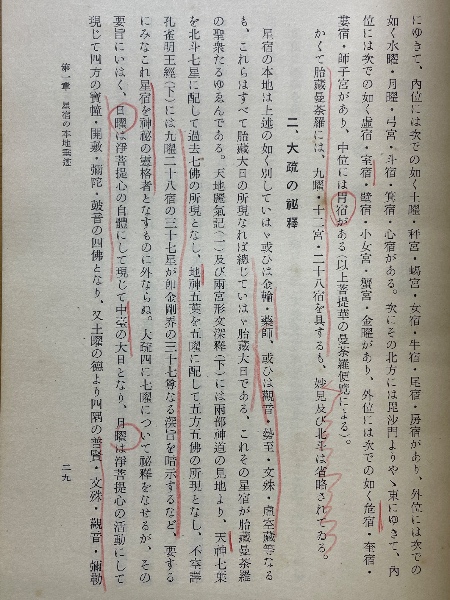 にゆきて、內位には次での如く土曜・秤宮・蝎宮・女宿・牛宿・尾宿・房宿があり、外位には次での
如く水曜・月曜・弓宮・斗宿・箕宿・心宿がある。次にその北方には毘沙門よりやゝ東にゆきて、內
位には次での如く虛宿・室宿・壁宿・小女宮・蟹宮・金曜があり、外位には次での如く危宿・奎宿・
婁宿・師子宮があり、中位には胃宿がある(以上菩提華の曼荼羅便覽による)。
かくて胎藏曼荼羅には、九曜・十二宮・二十八宿を具するも、妙見及び北斗は省略されてゐる。
二、大疏の祕釋
星宿の本地は上述の如く別していはゞ或ひは金輪・藥師、或ひは觀音・勢至・文殊・虛空藏等なる
も、これらはすべて胎藏大日の所現なれば總じていはゞ胎藏大日である、これその星宿が胎藏曼荼羅
の聖衆たるゆゑんである。天地麗氣記(一)及び兩宮形文深釋(下)には兩部神道の見地より、天神七葉
を北斗七星に配して過去七佛の所現となし、地神五葉を五曜に配して五方五佛の所現となし、不空譯
孔雀明王經(下)には九曜二十八宿の三十七星が卽金剛界の三十七尊なる深旨を暗示するなど、要する
にみなこれ星宿を神祕の靈格者となすものに外ならぬ。大疏四に七曜について祕釋をなせるが、その
要旨にいはく、日曜は淨菩提心の自體にして現じて中臺の大日となり、月曜は淨菩提心の活動にして
現じて四方の寶幢・開敷・彌陀・鼓音の四佛となり、又土曜の德より四隅の普賢・文殊・觀音・彌勒
第一章 星宿の本地垂迹
二九